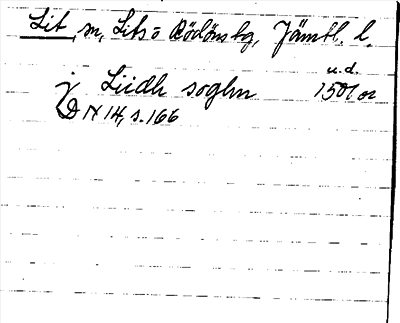 Lit sn, Lits o Rödöns tg, Jämtl. l.
u.d.
j Liidh soghn 1501 or
DN 14, s. 166